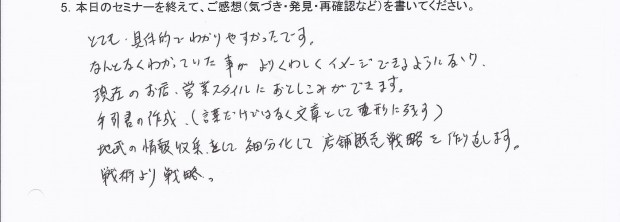 5. 本日のセミナーを終えて、ご感想（気づき・発見・再確認など）を書いてください。
とても・具体的でわかりやすかったです。
なんとなくわかっていた事が よりくわしくイメージできるようになり、
現在のお店・営業スタイルにおとしこみができます。
手引書の作成、(言葉だけではなく文章として 形に残す)
地域の情報収集をして 細分化して 店舗販売戦略を作り直します。
戦術より戦略。